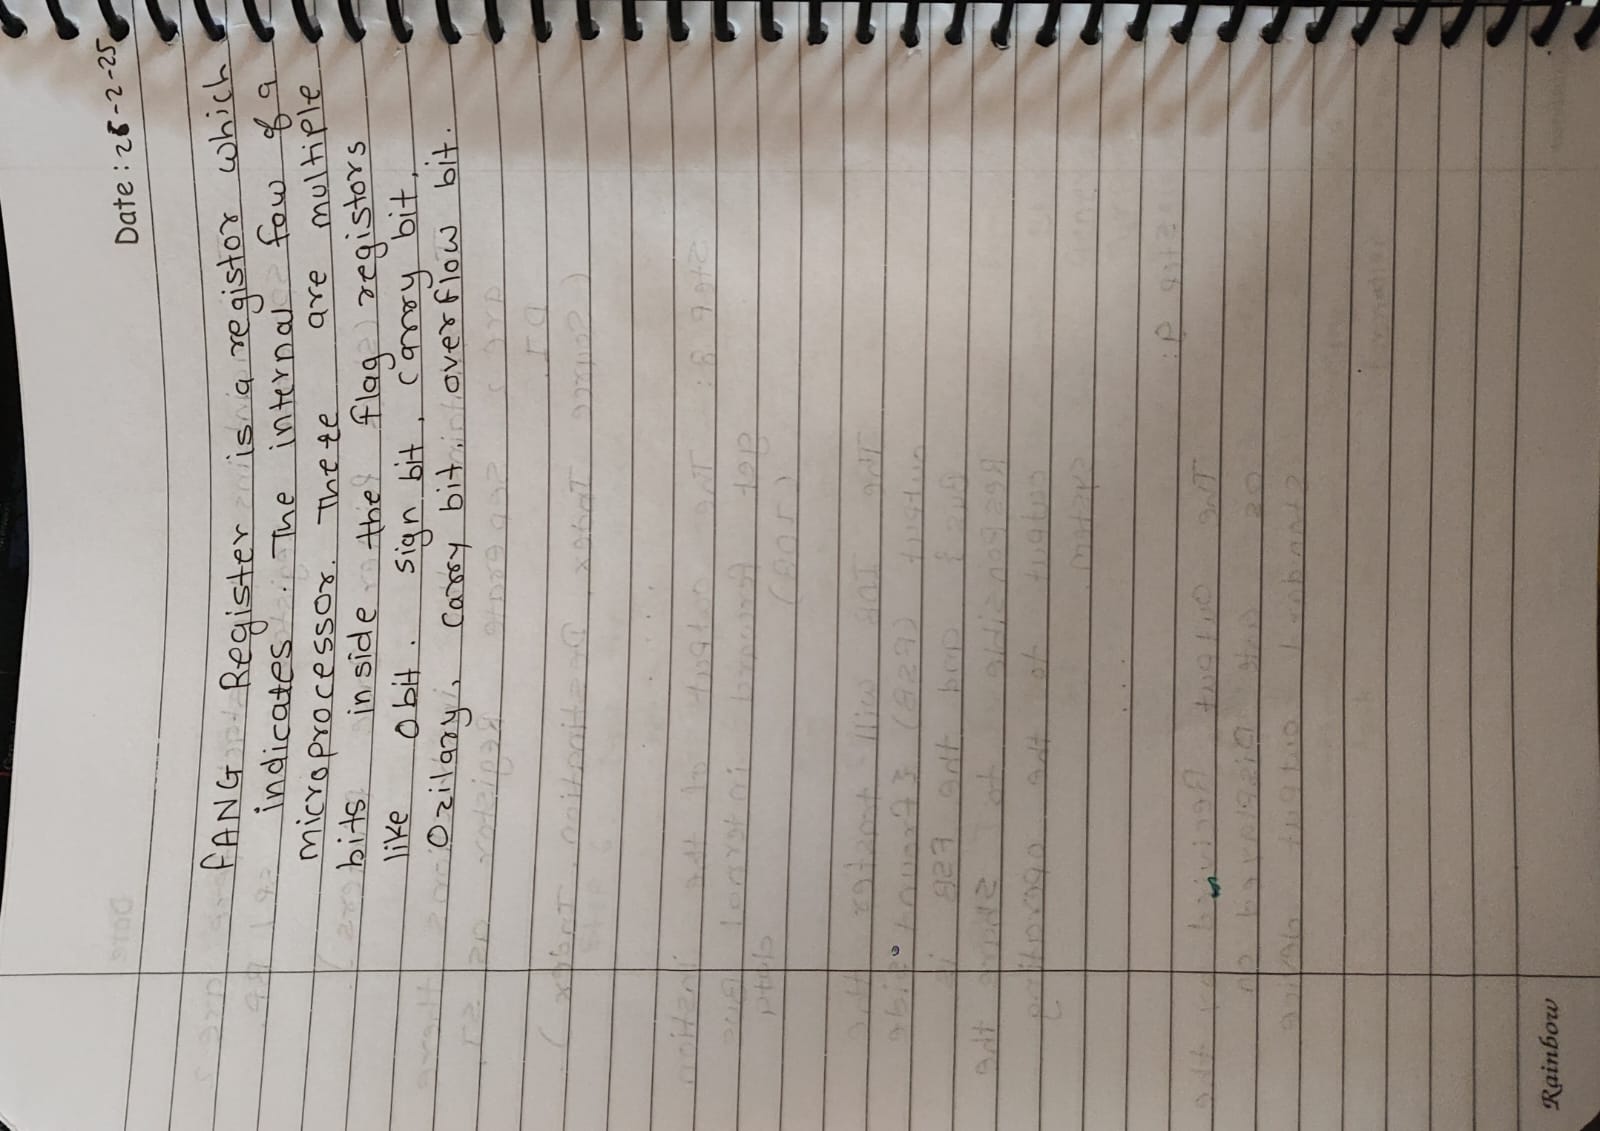 Date: 28-2-25
fANG Register is a registor which
indicates. The internal fow of a
microprocessor. There are multiple
bits inside the flag registors
like 0bit. sign bit, carry bit,
Ozilary, carry bit, overflow bit.
Rainbow